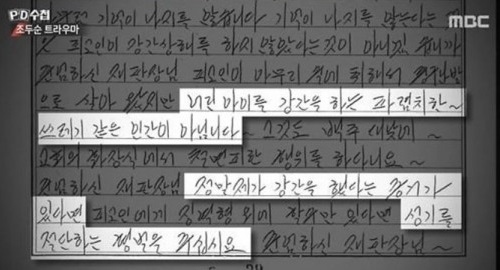 PD수첩
조두순 트라우마
MBC
기억이 나지를 않습니다 기억이 나지를 않는다는
피고인이 강간상해를 하지 않았다는것이 아니겠
존엄하신 재판장님 피고인이 아무리 술에 취해서
으로 살아 왔지만 어린 아이를 강간을 하는 파렴치한~
쓰레기 같은 인간이 아닙니다~ 그것도 백주 대낮에
교회의 화장실에서 철면피한 행위를 하다니요~
존엄하신 재판장님 정말제가 강간을 했다는 증거가
있다면 피고인에게 징역형 외에 할수만 있다면 성기를
절단하는 형벌을 주십시요 존엄하신 재판장님~